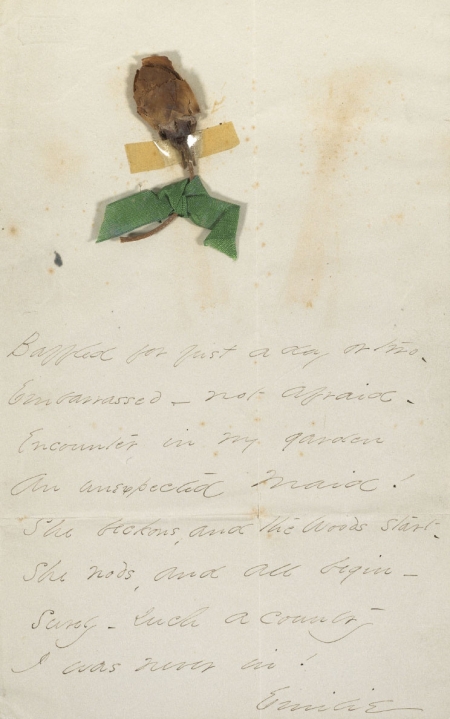 Baffled for just a day or two -
Embarrassed - not afraid -
Encounter in my garden
An unexpected Maid!
She beckons, and the Woods start -
She nods, and all begin -
Surely - such a country
I was never in!
Emilie -